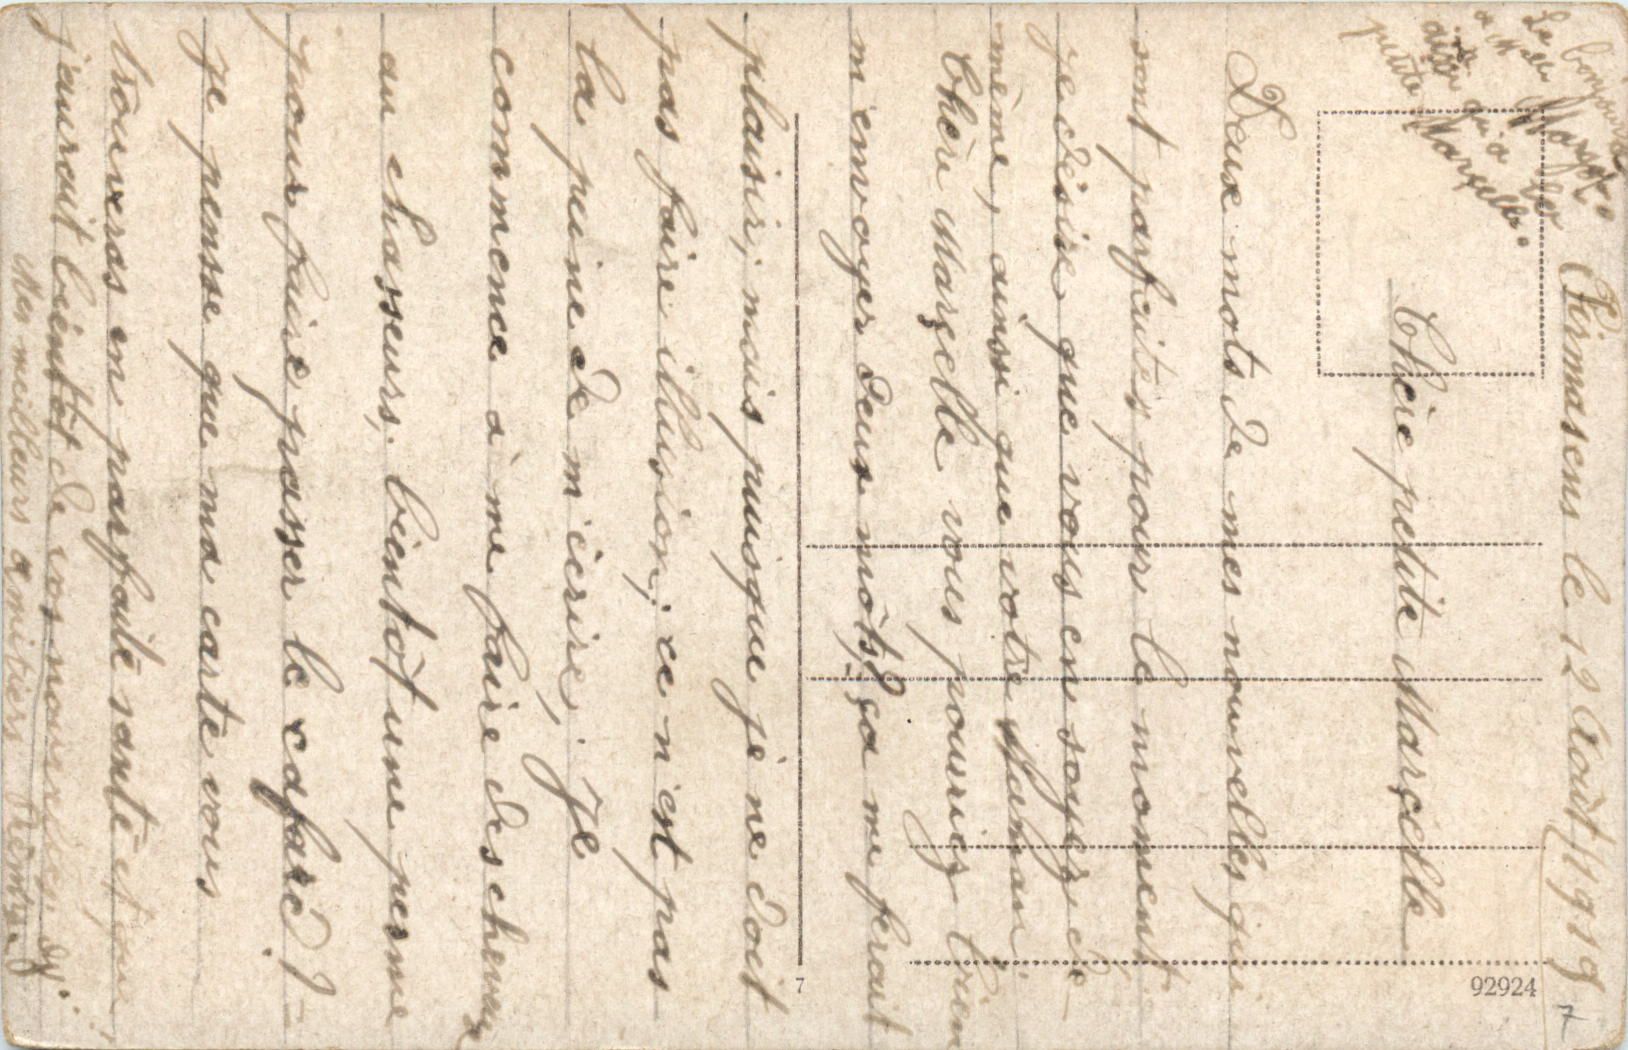 Pirmasens le 12 Août 1919
Chère petite Marçelle
Deux mots de mes nouvelles qui
sont parfaites pour le moment
je désire que vous en soyez de
même, ainsi que votre Maman
Chère Marçelle vous pouriez bien
m'envoyer deux mots, ça me ferait
plaisir, mais puisque je ne doit
pas faire illusion, ce n'est pas
la peine de m'écrire, Je
commence à me faire des cheveux
au chasseurs, bientôt une perme
pour faire passer le cafard !
je pense que ma carte vous
trouveras en parfaite santé et que
j'aurait bientôt de vos nouvelles
Mes meilleurs amitiers
Le bonjour
à Melle Margot
ainsi qu'à la
petite Marçelle.
92924
7
7